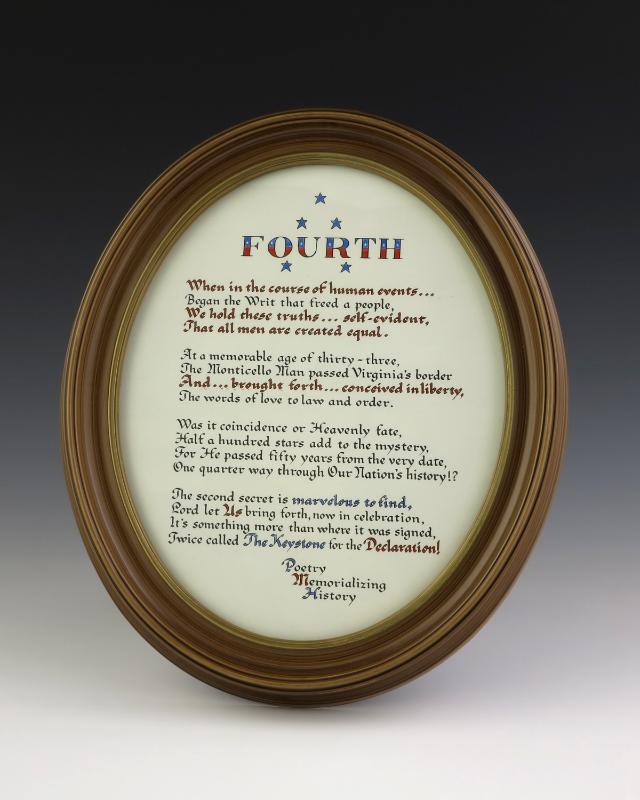 FOURTH
When in the course of human events...
Began the Writ that freed a people,
We hold these truths... self-evident,
That all men are created equal.
At a memorable age of thirty-three,
The Monticello Man passed Virginia's border
And... brought forth... conceived in liberty,
The words of love to law and order.
Was it coincidence or Heavenly fate,
Half a hundred stars add to the mystery,
For He passed fifty years from the very date,
One quarter way through Our Nation's history!?
The second secret is marvelous to find,
Lord let Us bring forth, now in celebration,
It's something more than where it was signed,
Twice called The Keystone for the Declaration!
Poetry
Memorializing
History